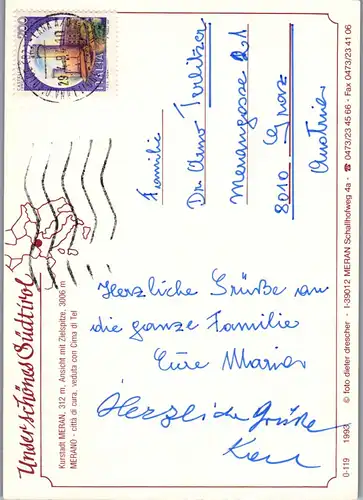 Familie
Dr. Arno Terlitzer
Merangasse 21
8010 Graz
Austria
Herzliche Grüße an
die ganze Familie
Eure Maria
Herzliche Grüße
Karl
Unser schönes Südtirol
Kurstadt MERAN, 312 m, Ansicht mit Zielspitze, 3006 m
MERANO - città di cura, veduta con Cima di Tel
0-119 1993 © foto dieter drescher - I-39012 MERAN Schallhofweg 4a · ☎ 0473/23 45 66 · Fax 0473/23 41 06
ITALIA